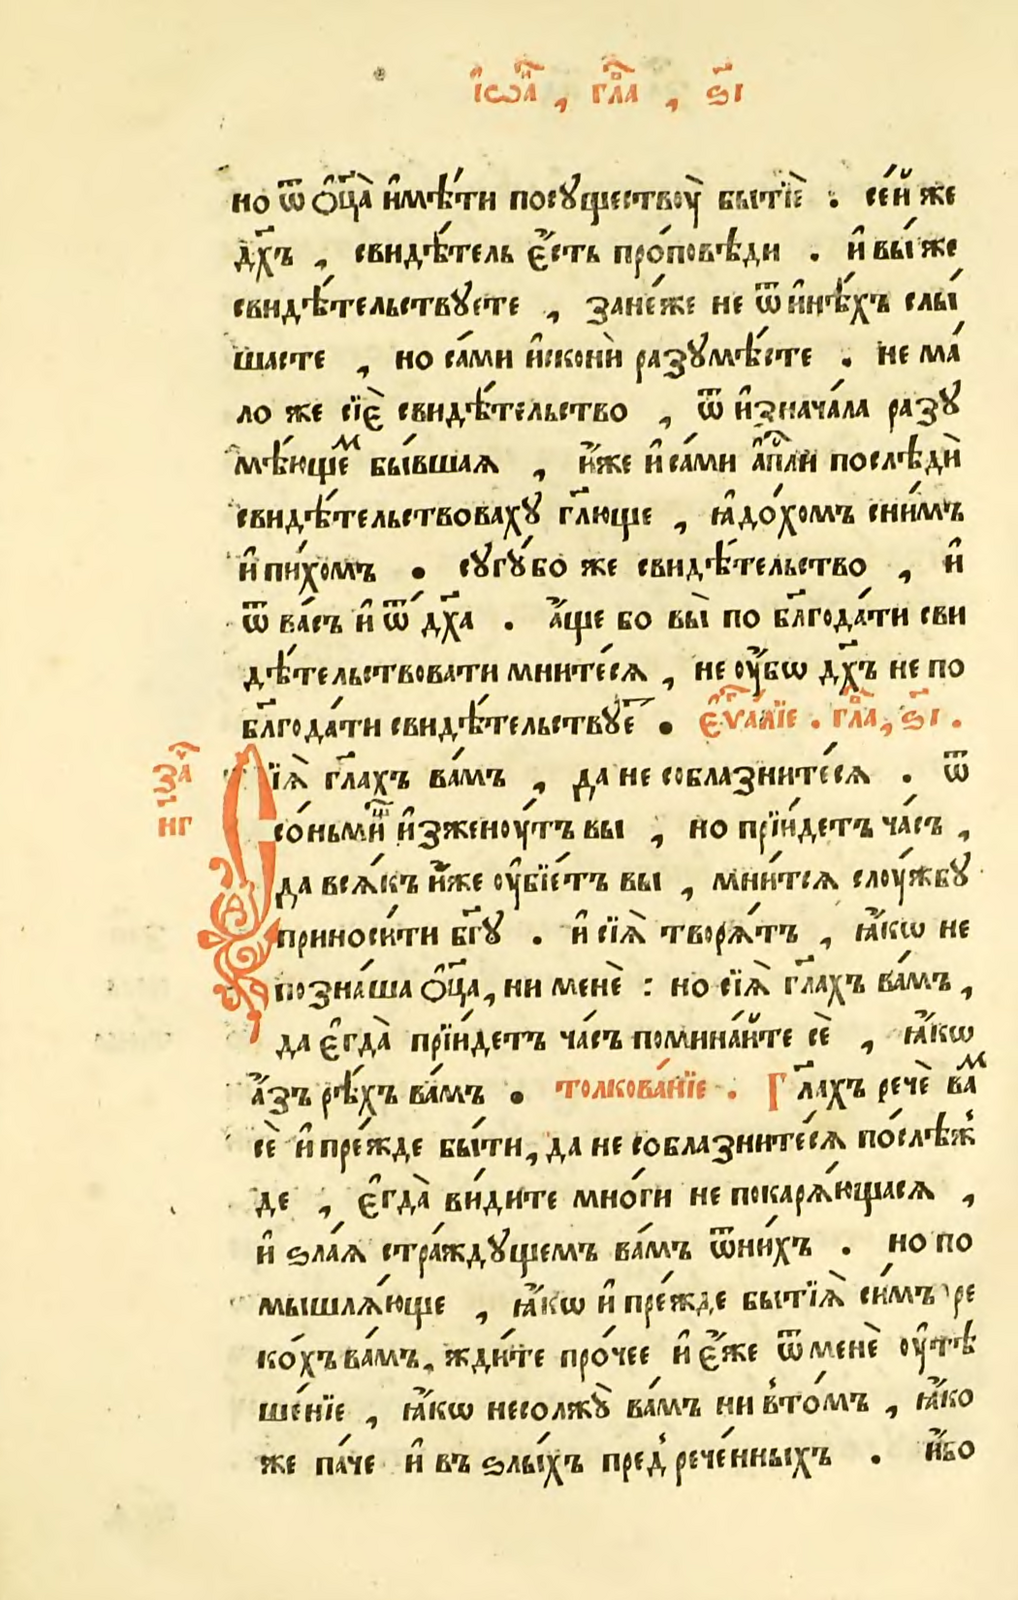 І҆ѡа҃ , гла҃ , ѕ҃і
но ѿ ѻ҆ц҃а̀ и҆мѣ́ти посꙋщество́у̀ бытїѐ . се́й же
дх҃ъ , свидѣ́тель є҆́сть про́повѣди . и҆ вы́ же
свидѣ́тельствꙋете , зане́же не ѿ и҆нѣ́хъ слы́
шасте , но са́ми и҆сконѝ разꙋмѣ́сте . не ма́
ло же сїѐ свидѣ́тельство , ѿ и҆знача́ла разꙋ
мѣ́ющем бы́вшаѧ , и҆́же и҆ са́ми а҆пⷭ҇ли послѣдѝ
свидѣ́тельствовахꙋ гл҃юще , ꙗ҆до́хомъ сни́мъ
и҆ пи́хомъ . сꙋгꙋ́бо же свидѣ́тельство , и҆
ѿ ва́съ и҆ ѿ дх҃а . а҆́ще бо вы̀ по бл҃года́ти сви
дѣ́тельствовати мните́сѧ , не ѹ҆́бѡ дх҃ъ не по
бл҃года́ти свидѣ́тельствꙋет . є҆ѵⷢ҇а́лїе . гла҃, ѕ҃і .
за҃
н҃г
Сїѧ̀ гл҃ахъ ва́мъ , да не соблазните́сѧ . ѿ
со́ньмищ и҆зженоу́тъ вы , но прїи́детъ ча́съ ,
да всѧ́къ и҆́же ѹ҆бїе́тъ вы , мни́тсѧ слоу́жбꙋ
приноси́ти бг҃ꙋ . и҆ сїѧ̀ творѧ́тъ , ꙗ҆́кѡ не
позна́ша ѻ҆ц҃а, ни менѐ : но сїѧ̀ гл҃ахъ ва́мъ ,
да є҆гда̀ прїи́детъ ча́съ помина́йте сѐ , ꙗ҆́кѡ
а҆́зъ рѣ́хъ ва́мъ . толкова́нїе . Гл҃ахъ речѐ вам
сѐ и҆ пре́жде бы́ти, да не соблазните́сѧ по́слѣж
де , є҆гда̀ ви́дите мно́ги не покарѧ́ющаѧсѧ ,
и҆ ѕла́ѧ стра́ждꙋщемъ ва́мъ ѿни́хъ . но по
мышлѧ́юще , ꙗ҆́кѡ и҆ пре́жде бытїѧ̀ си́мъ ре
ко́хъ ва́мъ, жди́те про́чее и҆ є҆́же ѿ менѐ ѹ҆тѣ
ше́нїе , ꙗ҆́кѡ несолжꙋ̀ ва́мъ ни вто́мъ , ꙗ҆́ко
же па́че и҆ въ ѕлы́хъ пред рече́нныхъ . и҆́бо